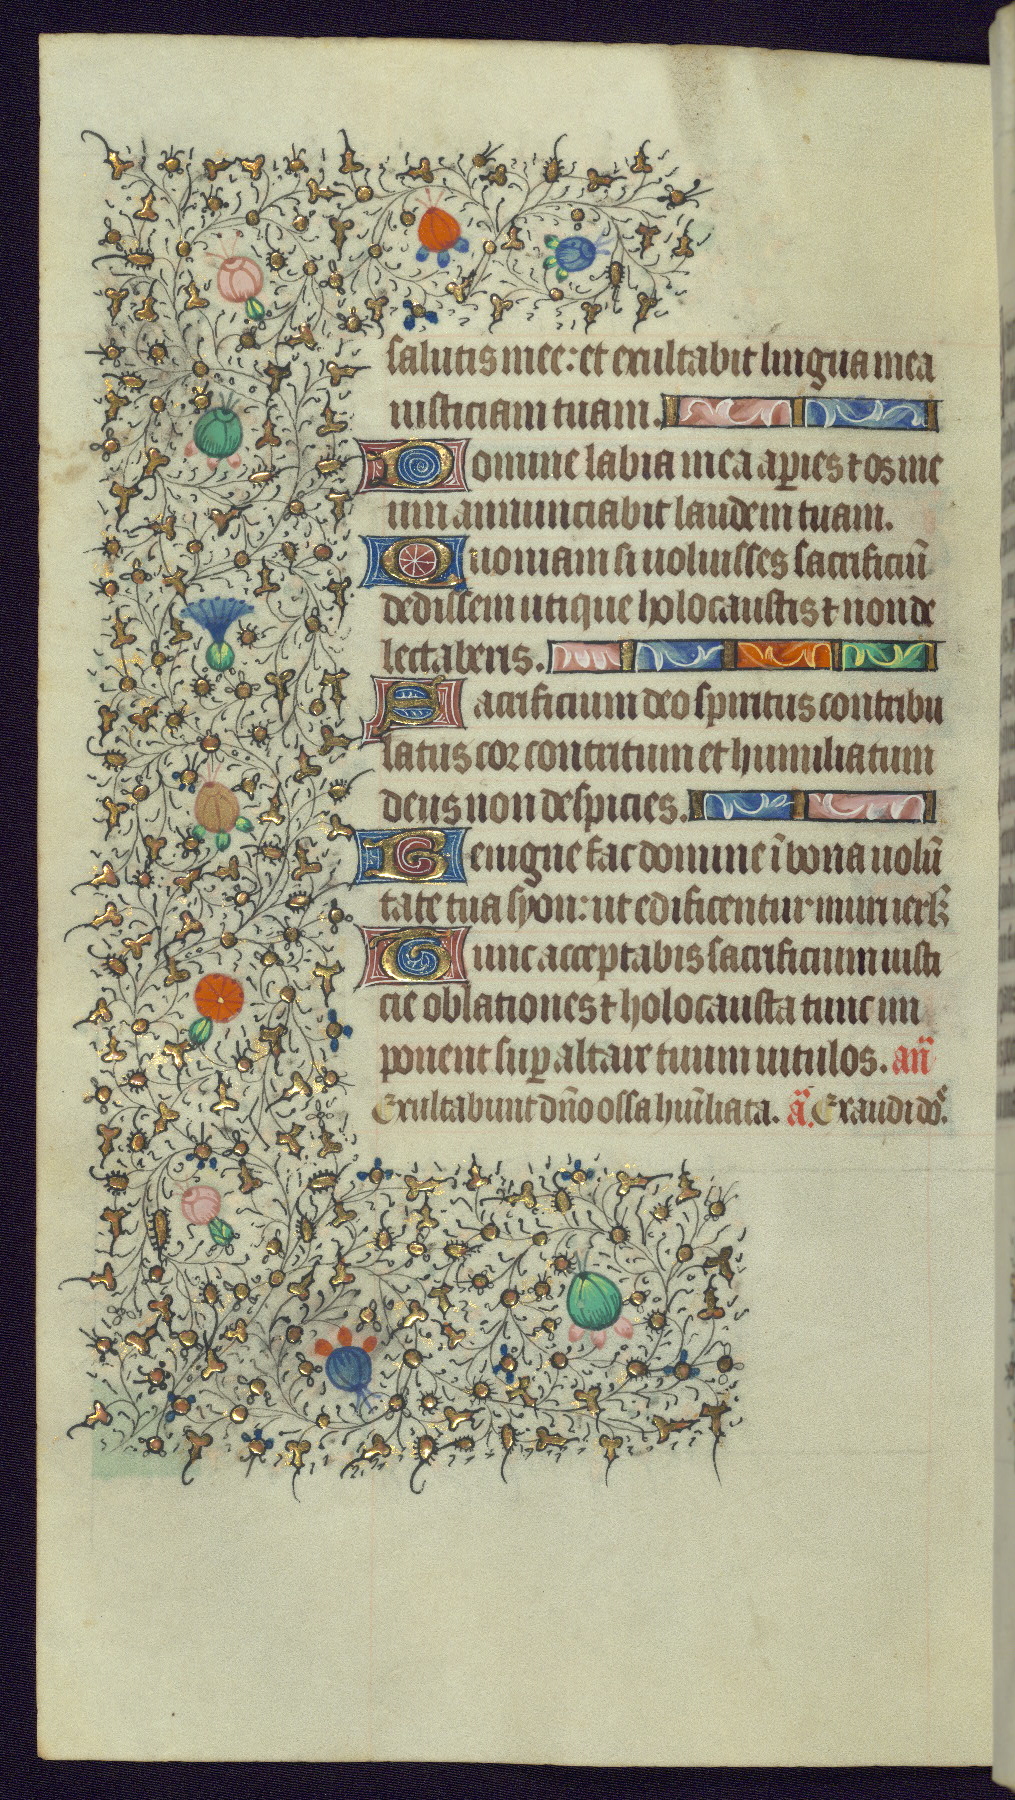 salutis mee: et exultabit lingua mea
iusticiam tuam.
Domine labia mea ap̲ies ⁊ os me
um annunciabit laudem tuam.
Quoniam si uoluisses sacrificiū
dedissem utique holocaustis ⁊ non de
lectaberis.
Sacrificium deo spiritus contribu
latus cor contritum et humiliatum
deus non despicies.
Benigne fac domine ī bona uolū
tate tua syon: ut edificentur muri ierl̄
Tunc acceptabis sacrificium iusti
cie oblationes ⁊ holocausta tunc im
ponent sup̲ altare tuum uitulos. an̄
Exultabunt dn̄o ossa hum̄liata. a᷒. Exaudi do᷒.